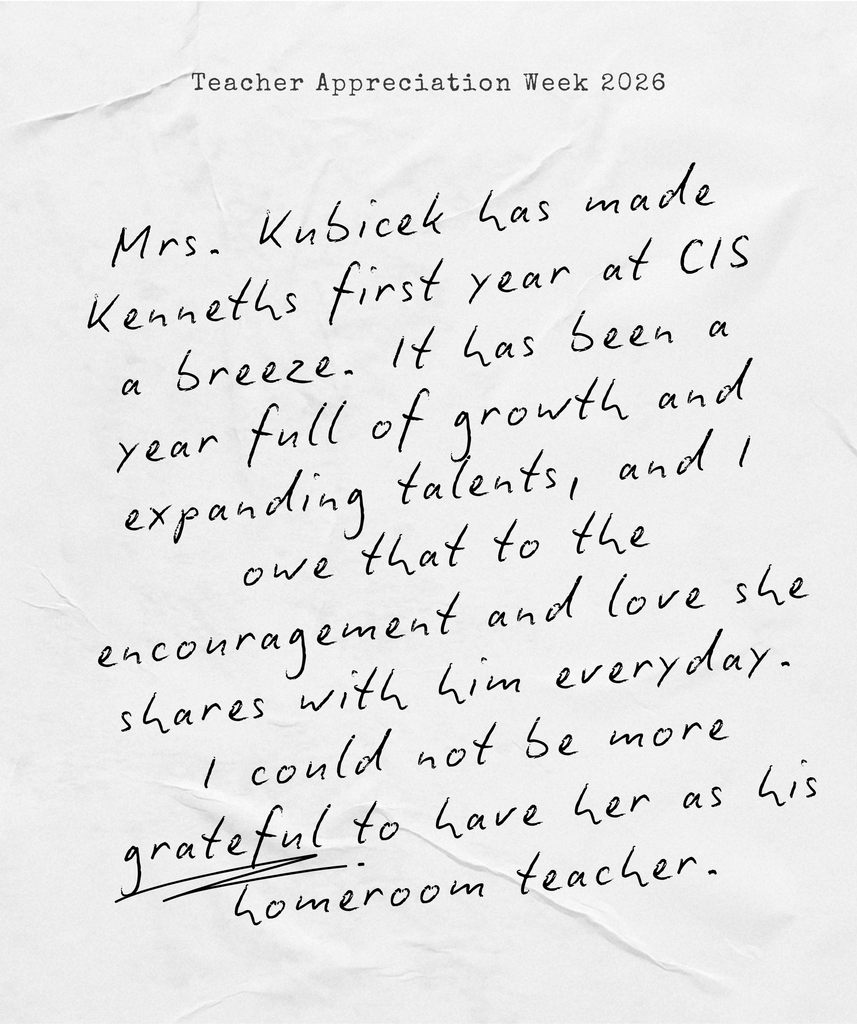 Teacher Appreciation Week 2026
Mrs. Kubicek has made
Kenneths first year at CIS
a breeze. It has been a
year full of growth and
expanding talents, and I
owe that to the
encouragement and love she
shares with him everyday.
I could not be more
grateful to have her as his
homeroom teacher.